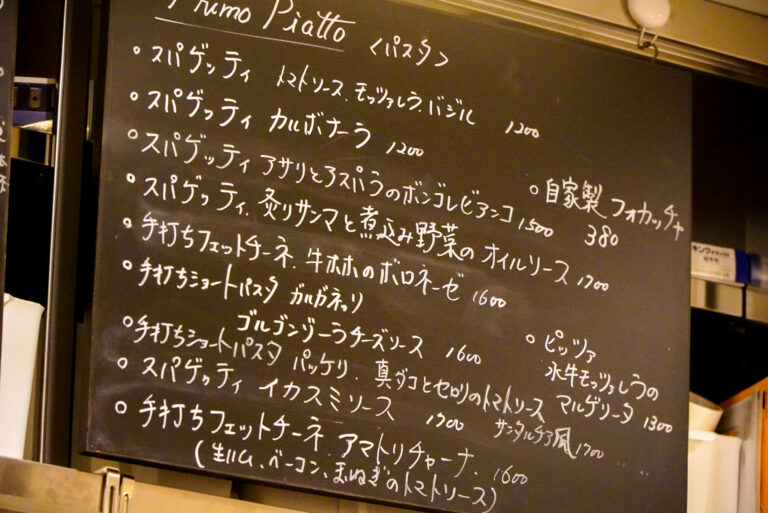 Primo Piatto <パスタ>
○ スパゲッティ トマトソース.モッツァレラ.バジル 1200
○ スパゲッティ カルボナーラ 1200
○ スパゲッティ アサリとアスパラのボンゴレビアンコ 1500
○ スパゲッティ. 炙りサンマと煮込み野菜のオイルソース 1700
○ 手打ちフェットチーネ. 牛ホホのボロネーゼ 1600
○ 手打ちショートパスタ ガルガネッリ
ゴルゴンゾーラチーズソース 1600
○ 手打ちショートパスタ パッケリ. 真ダコとセロリのトマトソース
サンタルチア風 1700
○ スパゲッティ イカスミソース 1700
○ 手打ちフェットチーネ. アマトリチャーナ. 1600
(生ハム、ベーコン、玉ねぎのトマトソース)
○ 自家製フォカッチャ
380
○ ピッツァ
水牛モッツァレラの
マルゲリータ 1300